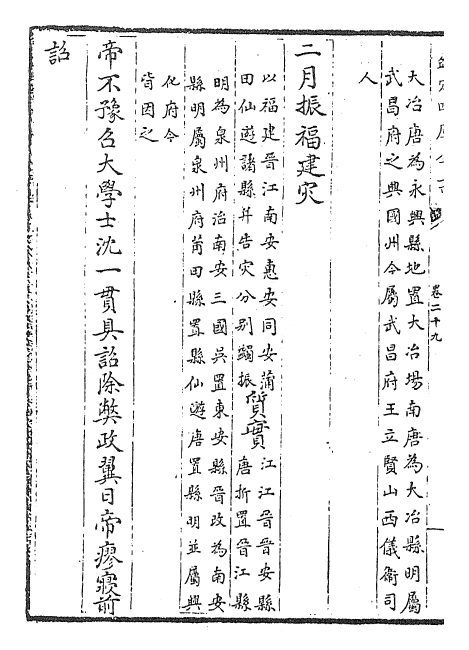 欽定四庫全書 卷二十九
大冶唐為永興縣地置大冶場南唐為大冶縣明屬
武昌府之興國州今屬武昌府王立賢山西儀衛司
人
二月振福建灾
以福建晉江南安惠安同安蒲
田仙遊諸縣并告灾分别蠲振
質實
江江晉晉安縣
唐折置晉江縣
明為泉州府治南安三國吳置東安縣晉改為南安
縣明屬泉州府莆田縣置縣仙遊唐置縣明並屬興
化府今
皆因之
帝不豫召大學士沈一貫具詔除弊政翼日帝瘳寢前
詔